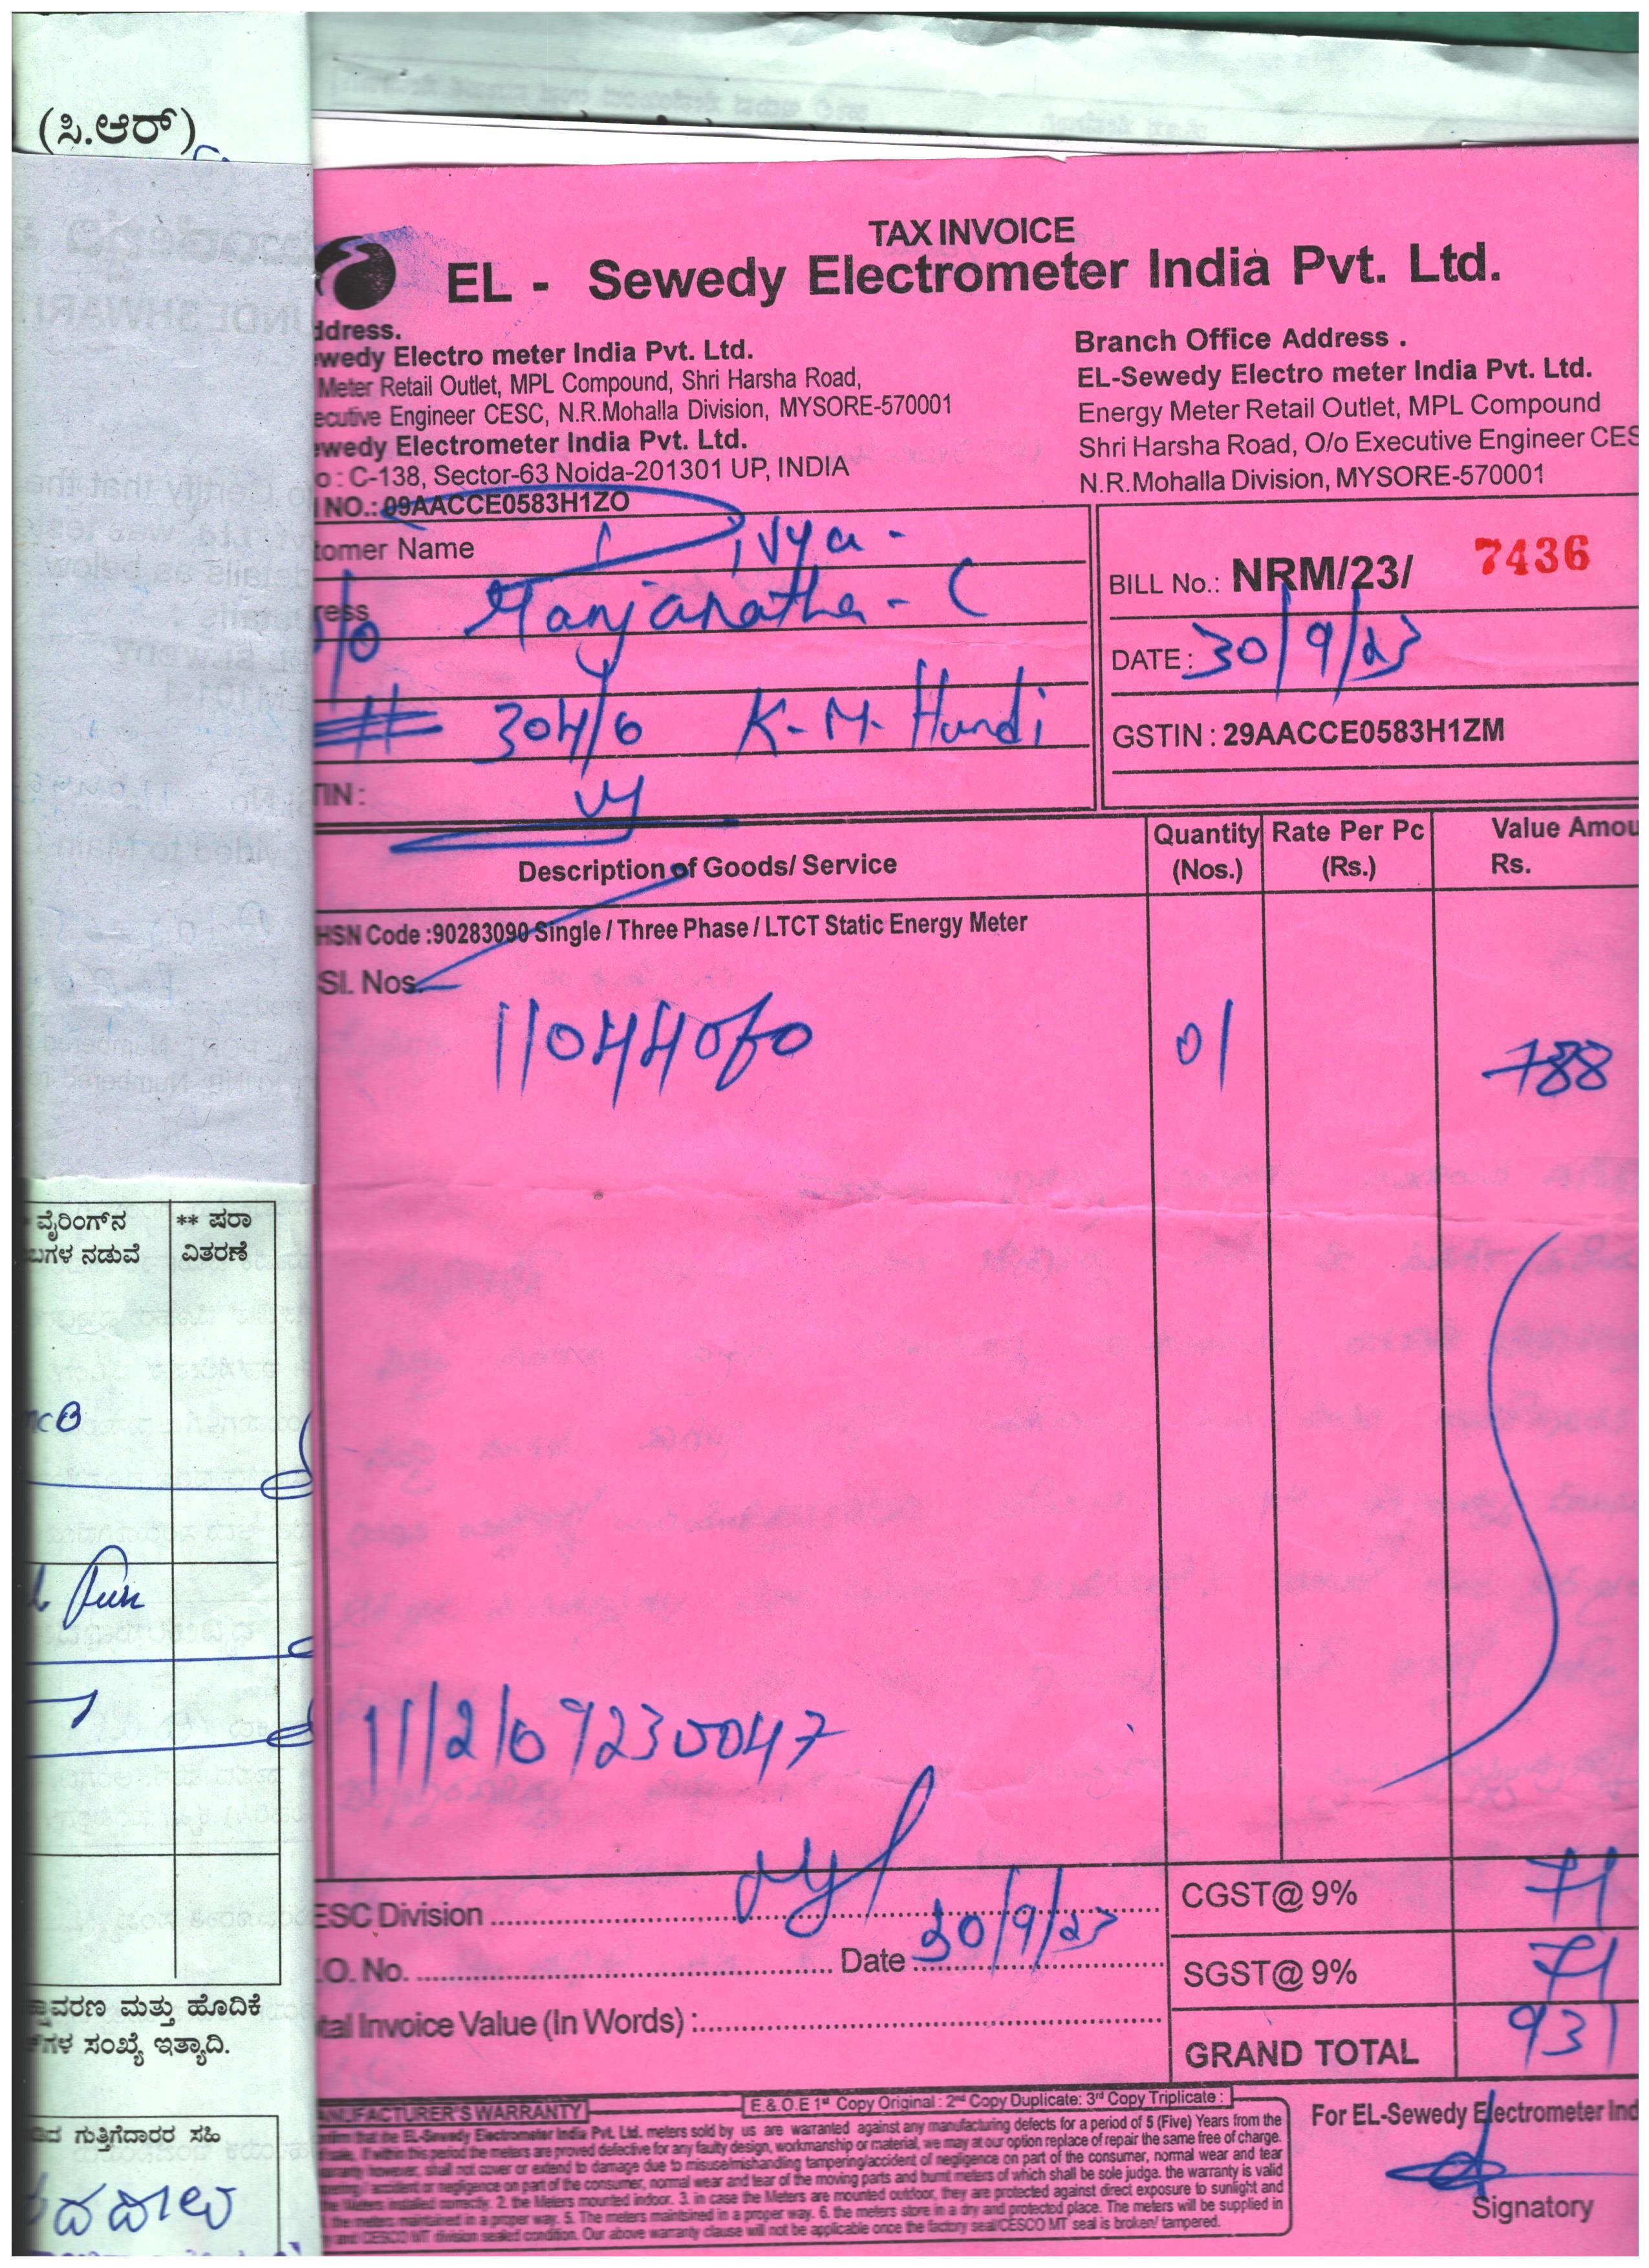 (ಸಿ.ಆರ್)
TAX INVOICE
EL - Sewedy Electrometer India Pvt. Ltd.
ddress.
wedy Electro meter India Pvt. Ltd.
Meter Retail Outlet, MPL Compound, Shri Harsha Road,
ecutive Engineer CESC, N.R.Mohalla Division, MYSORE-570001
ewedy Electrometer India Pvt. Ltd.
o : C-138, Sector-63 Noida-201301 UP, INDIA
NO.: 09AACCE0583H1ZO
Branch Office Address .
EL-Sewedy Electro meter India Pvt. Ltd.
Energy Meter Retail Outlet, MPL Compound
Shri Harsha Road, O/o Executive Engineer CES
N.R.Mohalla Division, MYSORE-570001
tomer Name Divya -
ress
/o Manjanatha - C
304/6 K-M- Hundi
TIN :
BILL No.: NRM/23/ 7436
DATE : 30/9/23
GSTIN : 29AACCE0583H1ZM
Description of Goods/ Service
Quantity (Nos.)
Rate Per Pc (Rs.)
Value Amou
Rs.
HSN Code :90283090 Single / Three Phase / LTCT Static Energy Meter
Sl. Nos.
01
788
ವೈರಿಂಗ್‌ನ
ಬಗಳ ನಡುವೆ
** ಷರಾ
ವಿತರಣೆ
ESC Division
.O. No. Date 30/9/23
tal Invoice Value (In Words) :
CGST@ 9% 71
SGST@ 9% 71
GRAND TOTAL 931
ವರಣ ಮತ್ತು ಹೊದಿಕೆ
ಗಳ ಸಂಖ್ಯೆ ಇತ್ಯಾದಿ.
ಗುತ್ತಿಗೆದಾರರ ಸಹಿ
E.& O.E 1st Copy Original : 2nd Copy Duplicate: 3rd Copy Triplicate :
ANUFACTURER'S WARRANTY
that the EL-Sewedy Electrometer India Pvt. Ltd. meters sold by us are warranted against any manufacturing defects for a period of 5 (Five) Years from the
If within this period the meters are proved defective for any faulty design, workmanship or material, we may at our option replace of repair the same free of charge.
however, shall not cover or extend to damage due to misuse/mishandling tampering/accident of negligence on part of the consumer, normal wear and tear
accident or negligence on part of the consumer, normal wear and tear of the moving parts and burnt meters of which shall be sole judge. the warranty is valid
installed correctly. 2. the Meters mounted indoor. 3. in case the Meters are mounted outdoor, they are protected against direct exposure to sunlight and
the meters maintained in a proper way. 5. The meters maintsined in a proper way. 6. the meters store in a dry and protected place. The meters will be supplied in
and/CESCO MT division sealed condition. Our above warranty clause will not be applicable once the factory seal/CESCO MT seal is broken/ tampered.
For EL-Sewedy Electrometer Ind
Signatory